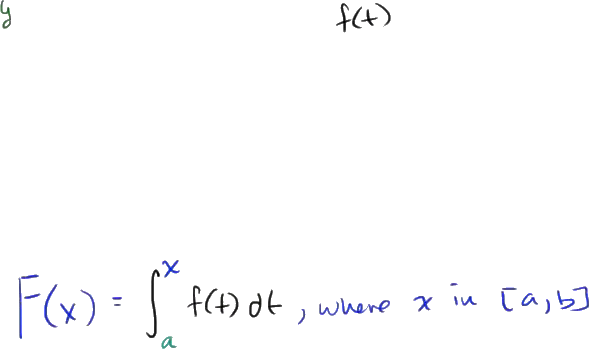 y f(t)
F(x) = ∫_a^x f(t) dt, where x in [a,b]